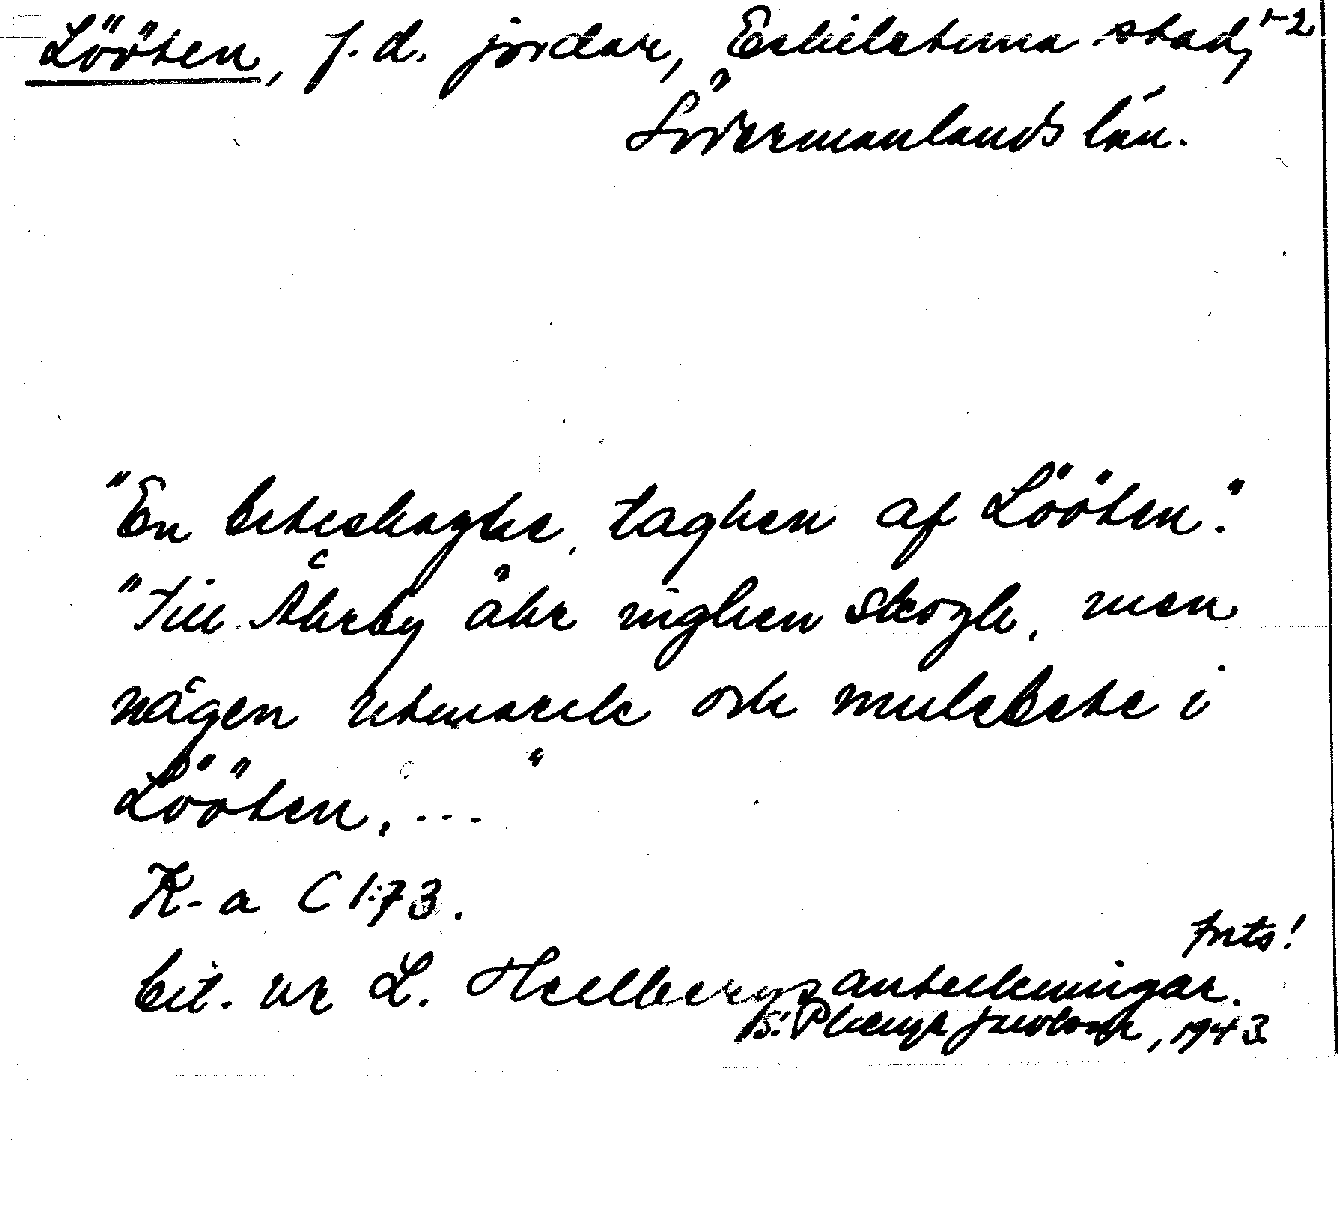 Lööten, f.d. jordar, Eskilstuna stad, 1-2
Södermanlands län.
"En beteshagke, taghen af Lööten."
"Till Åhrby ähr ingken skogh, men
någen utmarck och mulebete i
Lööten, ..."
K-a C 1:73.
forts!
Cit. ur L. Hellbergs anteckningar.
1943